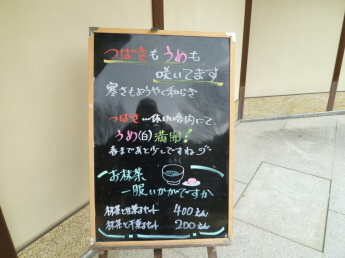 つばきもうめも
咲いてます
寒さもようやく和らぎ
つばき…休け時内にて
うめ(白)満開!
春まであと少しですね
お抹茶
一服いかがですか
抹茶と生菓子セット 400えん
抹茶と干菓子セット 200えん